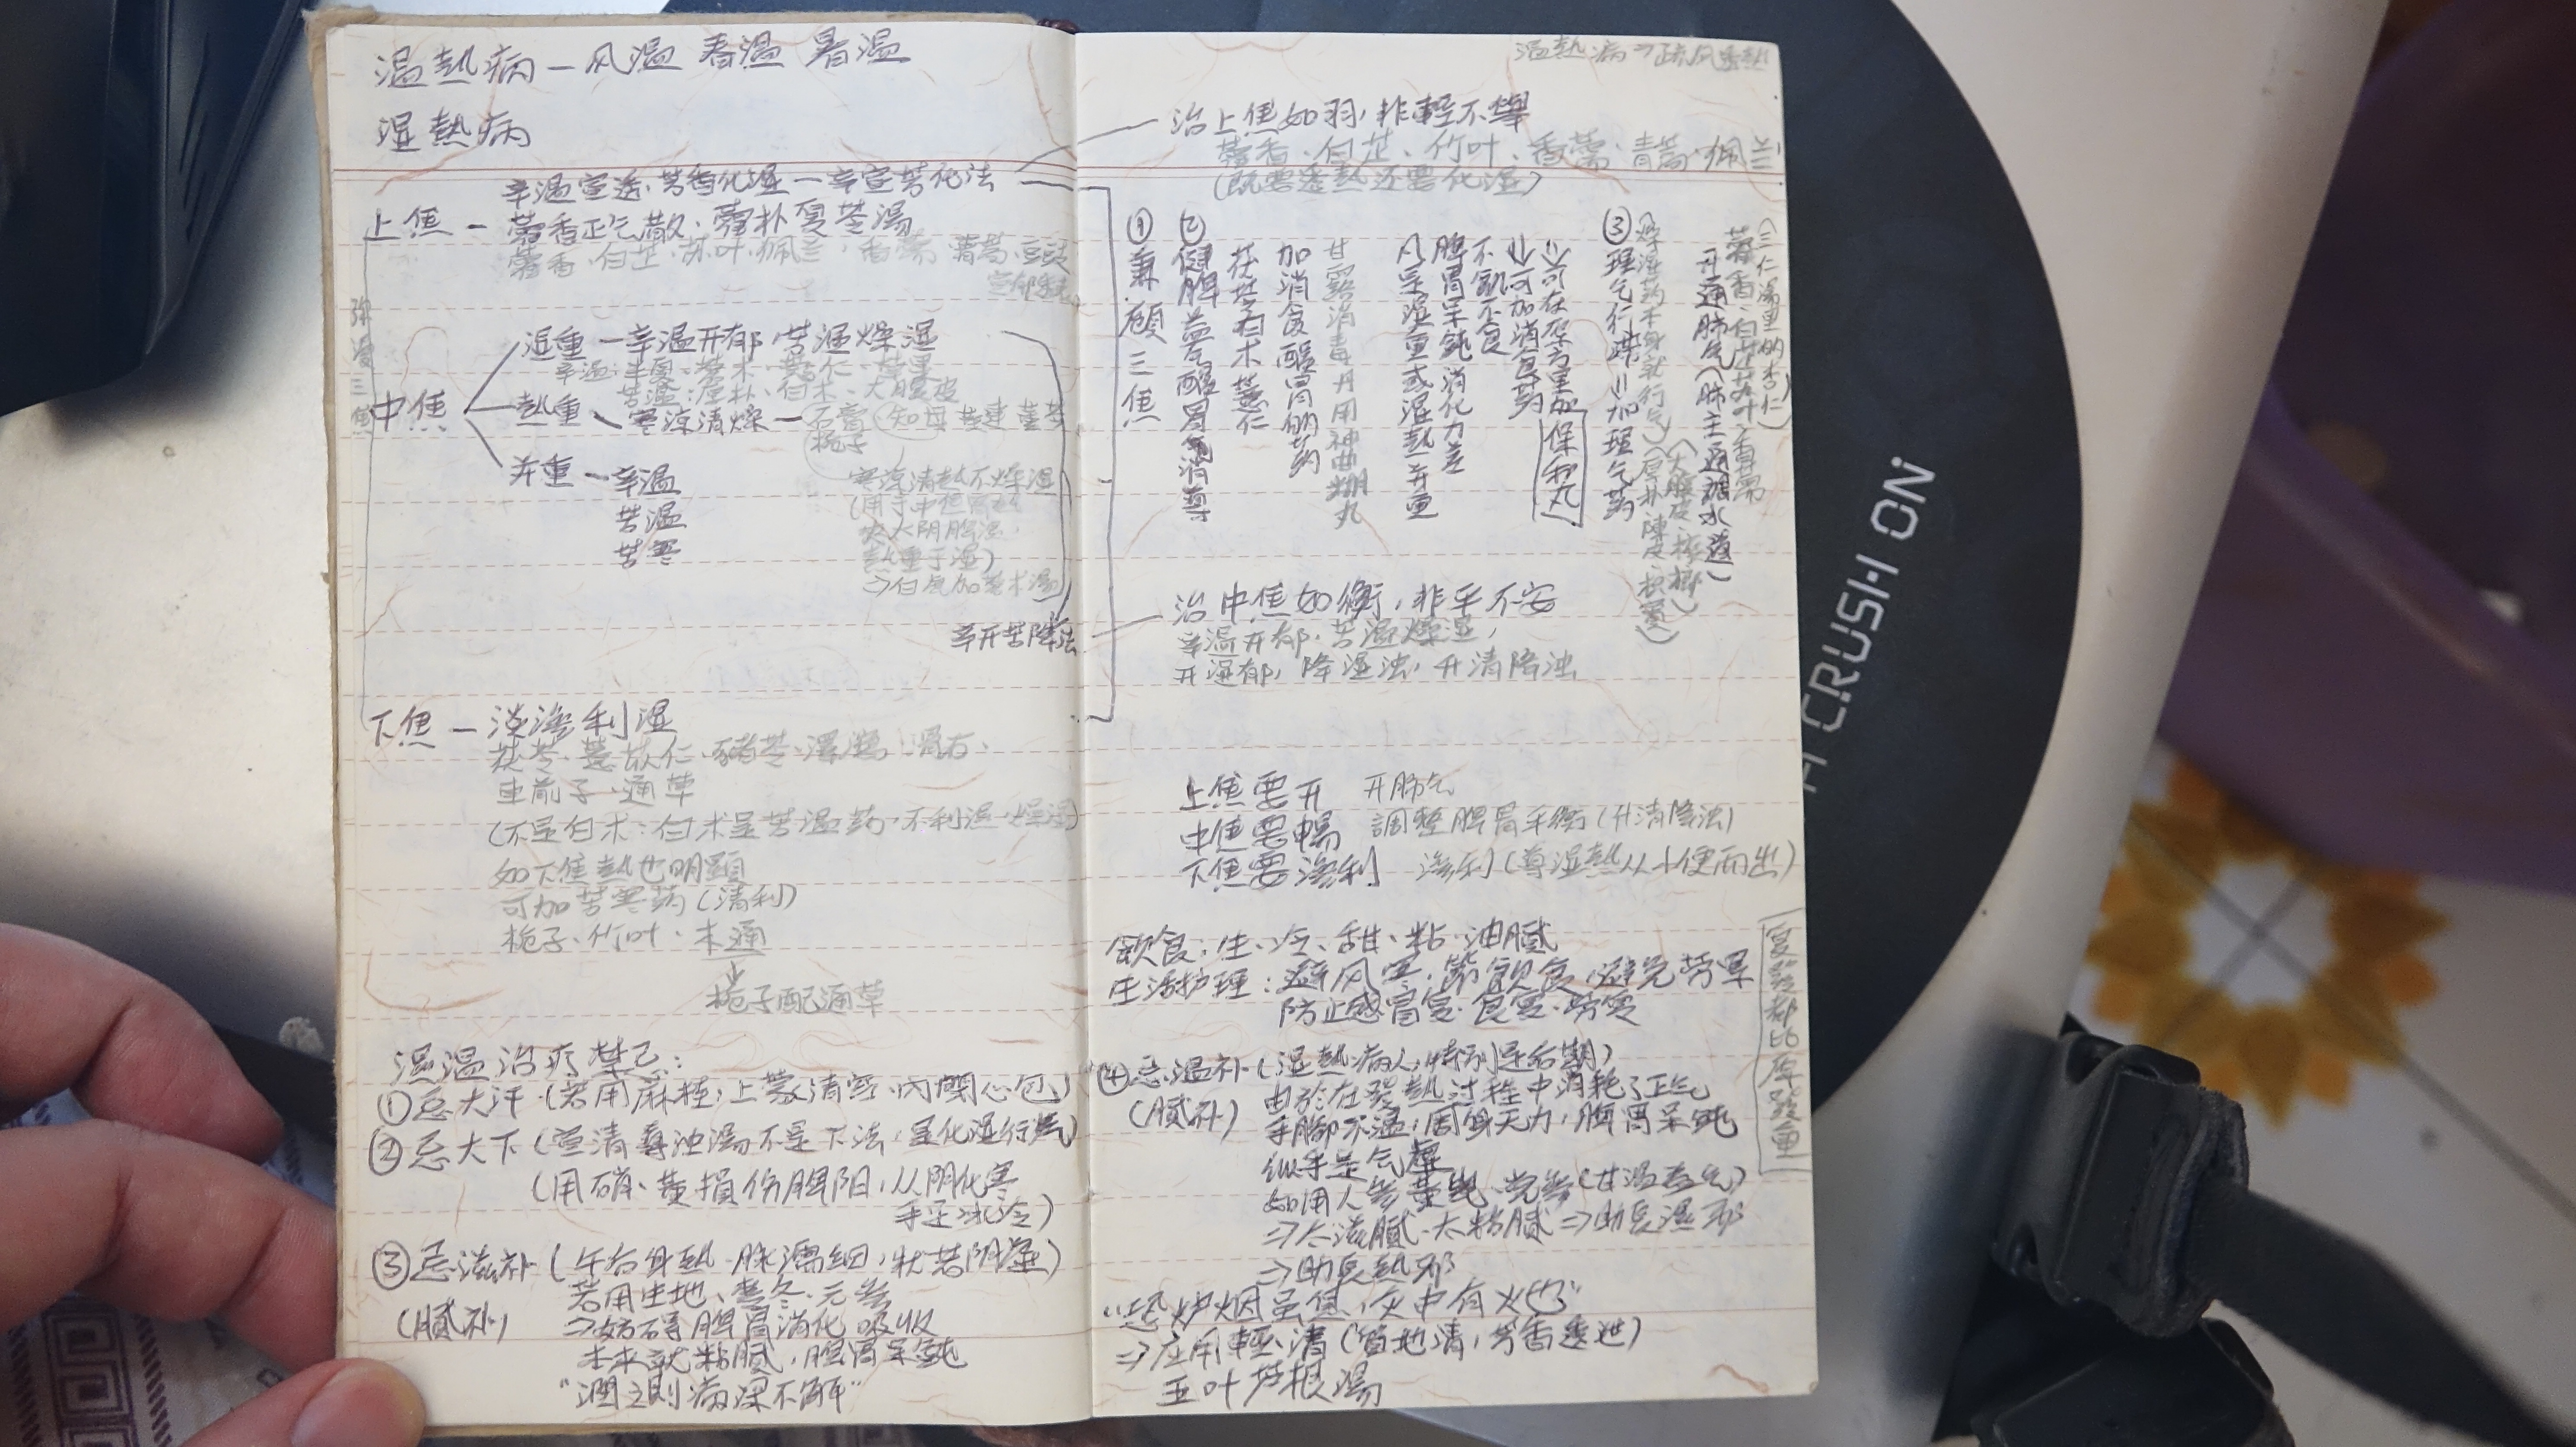 温熱病－风温 春温 暑温
湿熱病
辛温宣透、芳香化湿－辛宣芳化法
上焦－藿香正气散、藿朴夏苓湯
藿香、白芷、苏叶、佩兰、香薷、青蒿、豆豉
弥漫三焦
中焦
湿重－辛温开郁 苦温燥湿
辛温：半夏、苍术、蔻仁、草果
苦温：厚朴、白术、大腹皮
熱重－寒凉清燥－石膏 知母 黄連 黄芩
栀子
并重－辛温
苦温
苦寒
寒凉清熱不燥湿
(用于中焦胃熱
夹太阴脾湿,
熱重于湿)
⇒白虎加苍术湯
辛开苦降法
下焦－淡渗利湿
茯苓、薏苡仁、豬苓、澤瀉、滑石、
車前子、通草
(不是白术：白术是苦温药、不利湿、燥湿)
如下焦熱也明顯
可加苦寒药(清利)
栀子、竹叶、木通
↓
栀子配通草
湿温治疗禁忌：
①忌大汗(若用麻桂,上蒙清窍、内閉心包)
②忌大下(宣清導浊湯不是下法,是化湿行氣)
(用硝、黄損伤脾阳,从阴化寒
手足冰冷)
③忌滋补(午后身熱、脉濡细,状若阴虚)
(腻补)
若用生地、麦冬、元参
⇒妨碍脾胃消化吸收
本来就粘腻,脾胃呆鈍
“潤之則病深不解”
温熱病⇒疏风透熱
治上焦如羽,非輕不舉
藿香、白芷、竹叶、香薷、青蒿、佩兰
(既要透熱还要化湿)
①兼顾三焦
②健脾益气醒胃消導
茯苓白术薏仁
加消食醒胃的药
甘露消毒丹用神曲糊丸
凡是湿重或湿熱并重
脾胃呆鈍消化力差
不飢不食
⇓可加消食药
⇓可在处方里加保和丸
③理气行滞⇓加理气药
燥湿药本身就行气
(厚朴陳皮枳實)
(大腹皮槟榔)
开通肺气(肺主通調水道)
藿香、白芷苏叶、香薷
(三仁湯里的杏仁)
治中焦如衡,非平不安
辛温开郁、苦温燥湿,
开湿郁,降湿浊,升清降浊
上焦要开 开肺气
中焦要暢 調整脾胃平衡(升清降浊)
下焦要渗利 渗利(導湿熱从小便而出)
飲食：生、冷、甜、粘、油腻
生活护理：避风寒,節飲食,避免劳累
防止感冒复、食复、劳复
复發都比原發重
④忌温补(湿熱病人,特别是后期)
(腻补)
由於在發熱过程中消耗了正气
手脚不温,周身无力,脾胃呆鈍
似乎是气虚
如用人参黄芪、党参(甘温益气)
⇒太滋腻、太粘腻⇒助長濕邪
⇒助長熱邪
“恐炉烟虽熄,灰中有火也”
⇒应用輕、清(質地清,芳香透泄)
五叶芦根湯
A CRUSH ON